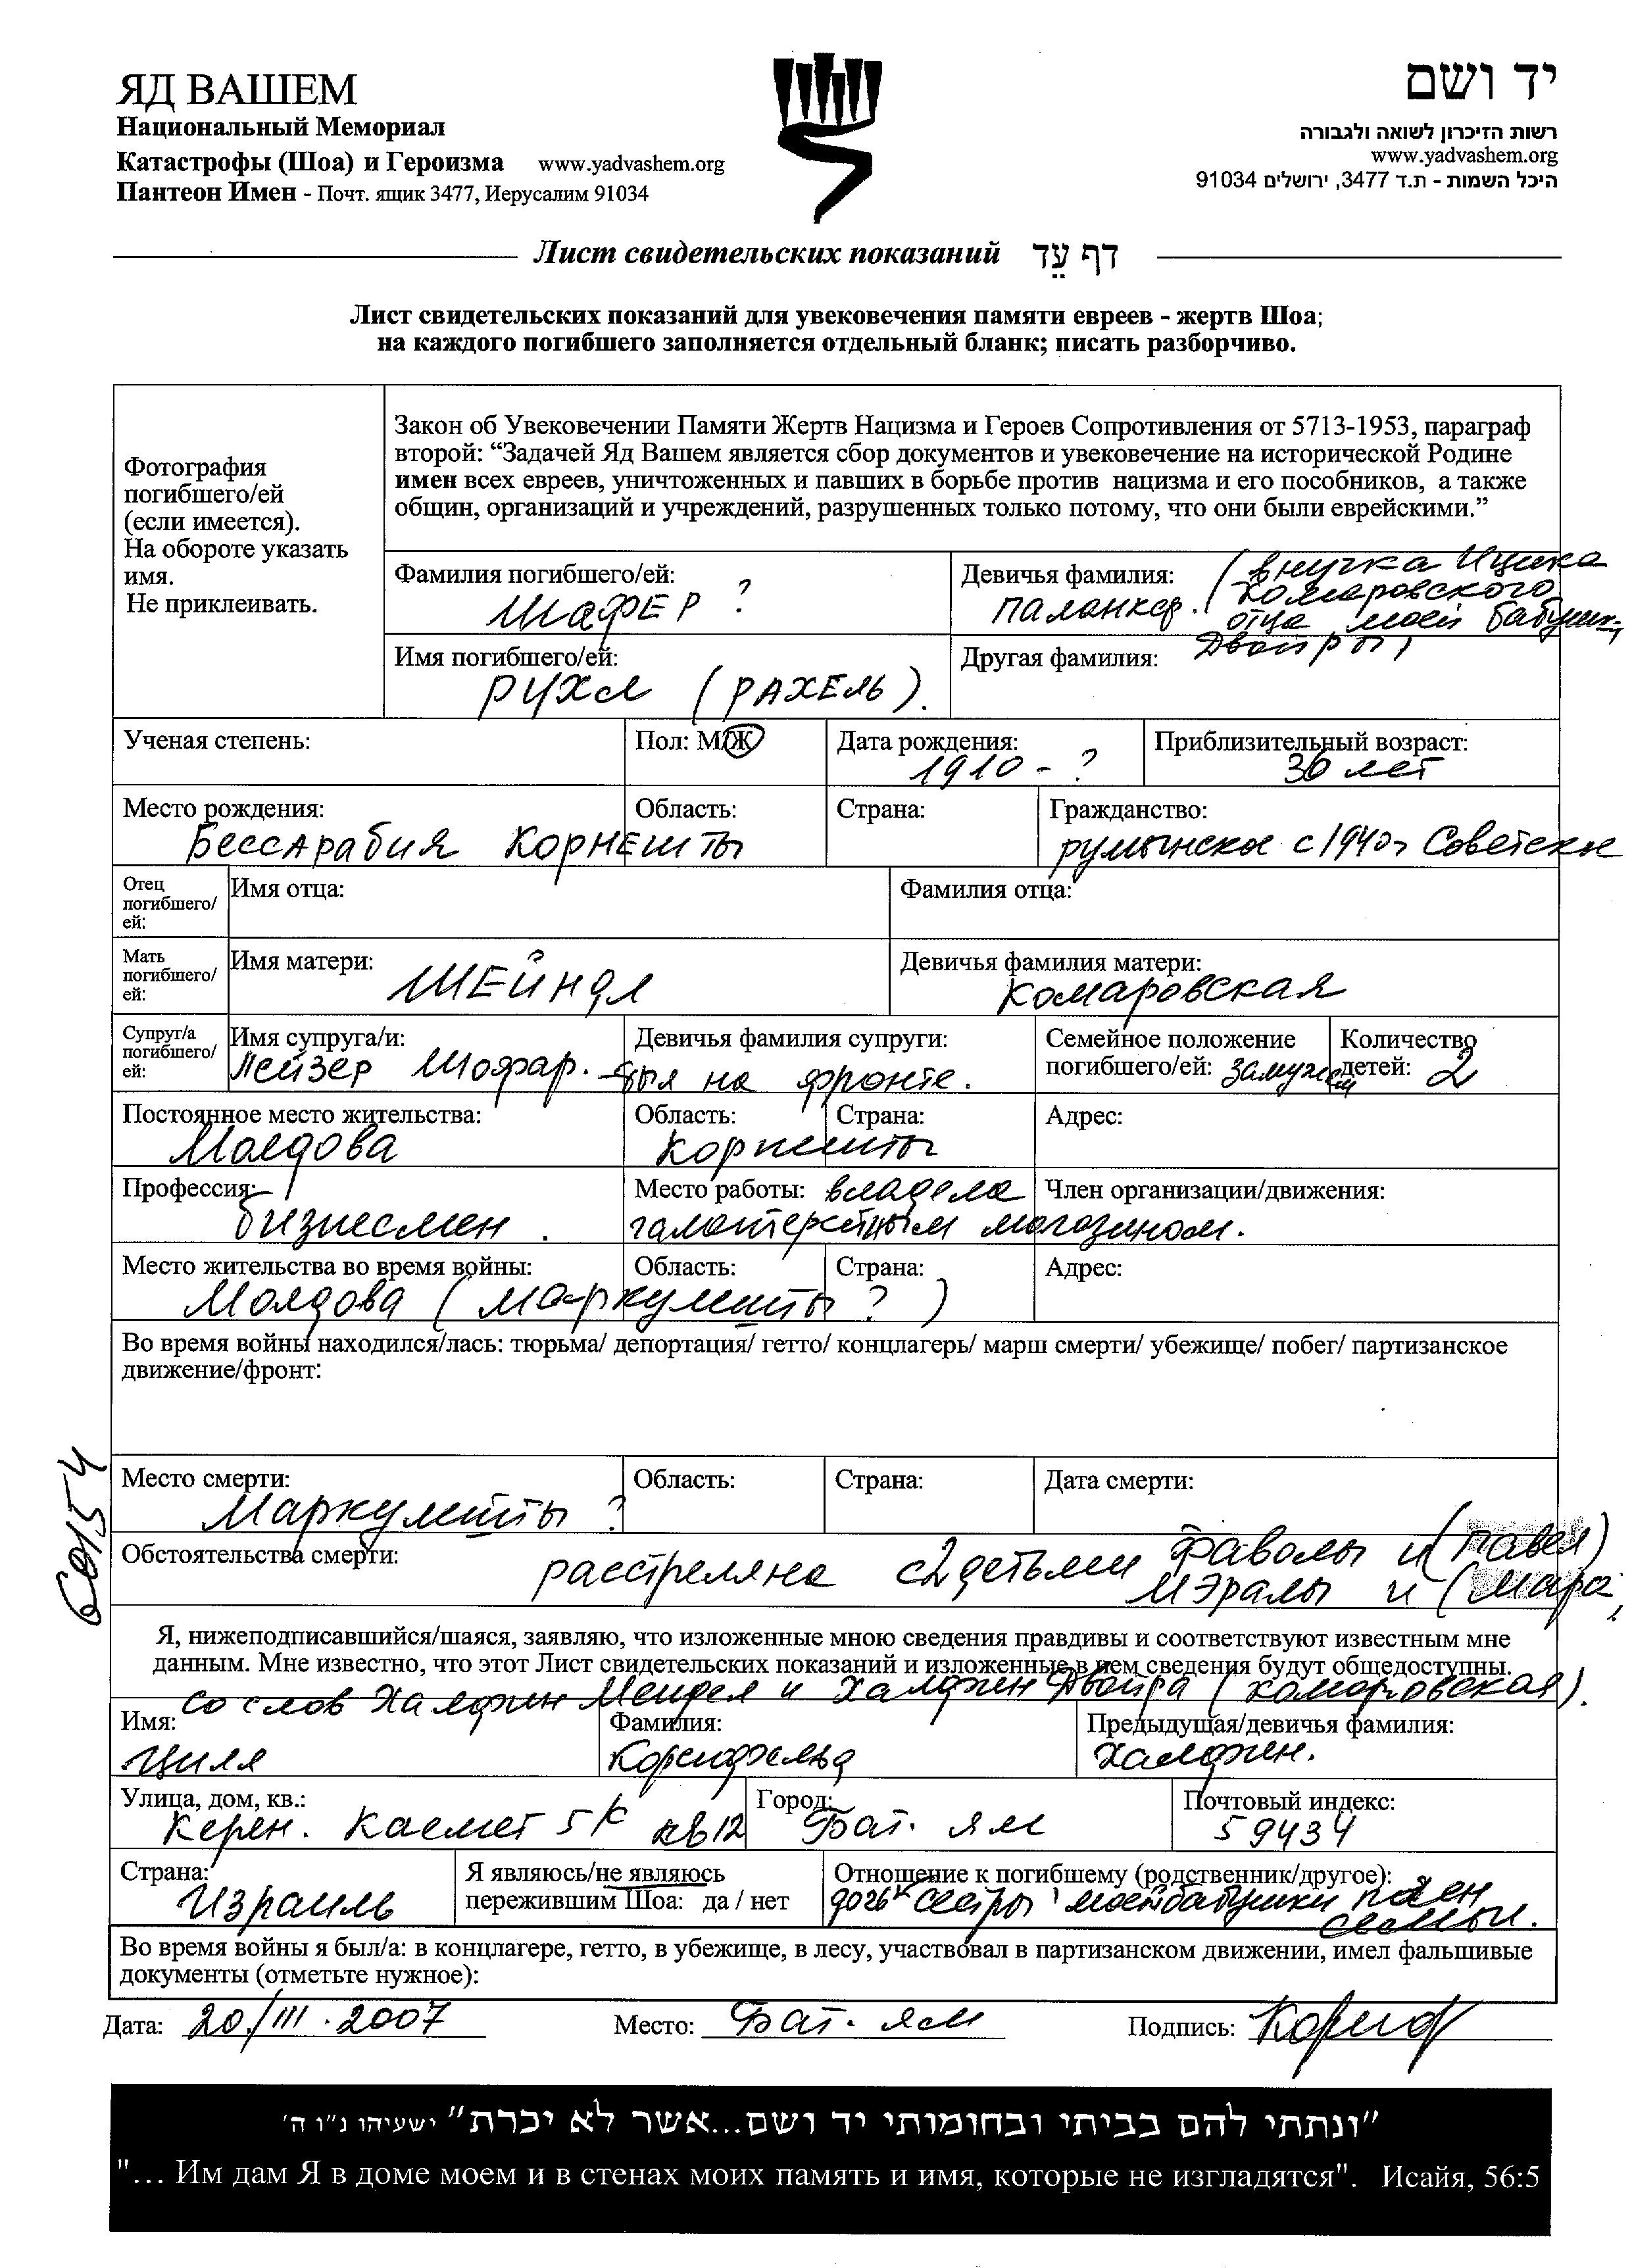 ЯД ВАШЕМ
Национальный Мемориал
Катастрофы (Шоа) и Героизма www.yadvashem.org
Пантеон Имен - Почт. ящик 3477, Иерусалим 91034
יד ושם
רשות הזיכרון לשואה ולגבורה
www.yadvashem.org
היכל השמות - ת.ד 3477, ירושלים 91034
Лист свидетельских показаний דף עֵד
Лист свидетельских показаний для увековечения памяти евреев - жертв Шоа;
на каждого погибшего заполняется отдельный бланк; писать разборчиво.
Фотография
погибшего/ей
(если имеется).
На обороте указать
имя.
Не приклеивать.
Закон об Увековечении Памяти Жертв Нацизма и Героев Сопротивления от 5713-1953, параграф
второй: “Задачей Яд Вашем является сбор документов и увековечение на исторической Родине
имен всех евреев, уничтоженных и павших в борьбе против нацизма и его пособников, а также
общин, организаций и учреждений, разрушенных только потому, что они были еврейскими.”
Фамилия погибшего/ей:
ШАФЕР ?
Девичья фамилия: (внучка Ицика
паланкер. Комаровского
отца моей бабушки
Двойры)
Имя погибшего/ей:
РУХЛ (РАХЕЛЬ).
Другая фамилия:
Ученая степень:
Пол: М/Ж
Дата рождения:
1910 - ?
Приблизительный возраст:
30 лет
Место рождения:
Бессарабия Корнешты
Область:
Страна:
Гражданство:
румынское с 1940г Советское
Отец
погибшего/
ей:
Имя отца:
Фамилия отца:
Мать
погибшего/
ей:
Имя матери:
ШЕЙНДЛ
Девичья фамилия матери:
Комаровская
Супруг/а
погибшего/
ей:
Имя супруга/и:
Лейзер Шофар. - был на фронте.
Девичья фамилия супруги:
Семейное положение
погибшего/ей: замужем
Количество
детей: 2
Постоянное место жительства:
Молдова
Область:
Корнешты
Страна:
Адрес:
Профессия:
бизнесмен.
Место работы: владела
галантерейным магазином.
Член организации/движения:
Место жительства во время войны:
Молдова (Маркулешты ?)
Область:
Страна:
Адрес:
Во время войны находился/лась: тюрьма/ депортация/ гетто/ концлагерь/ марш смерти/ убежище/ побег/ партизанское
движение/фронт:
Место смерти:
Маркулешты ?
Область:
Страна:
Дата смерти:
Обстоятельства смерти:
расстреляна с 2 детьми Фаволы и (павел)
Мэралы и (Мара,
Я, нижеподписавшийся/шаяся, заявляю, что изложенные мною сведения правдивы и соответствуют известным мне
данным. Мне известно, что этот Лист свидетельских показаний и изложенные в нем сведения будут общедоступны.
со слов Халфин Мендел и Халфин Двойра (Комаровская).
Имя:
Циля
Фамилия:
Корнфельд
Предыдущая/девичья фамилия:
Халфин.
Улица, дом, кв.:
Керен. Каемет 5 к кв 12
Город:
Бат. ям
Почтовый индекс:
59434
Страна:
Израиль
Я являюсь/не являюсь
пережившим Шоа: да / нет
Отношение к погибшему (родственник/другое):
дочь сестры моей бабушки
семьи.
Во время войны я был/а: в концлагере, гетто, в убежище, в лесу, участвовал в партизанском движении, имел фальшивые
документы (отметьте нужное):
Дата: 20/III.2007
Место: Бат. ям
Подпись: Корнф
"ונתתי להם בביתי ובחומותי יד ושם...אשר לא יכרת" ישעיהו נ"ו ה'
"... Им дам Я в доме моем и в стенах моих память и имя, которые не изгладятся". Исайя, 56:5